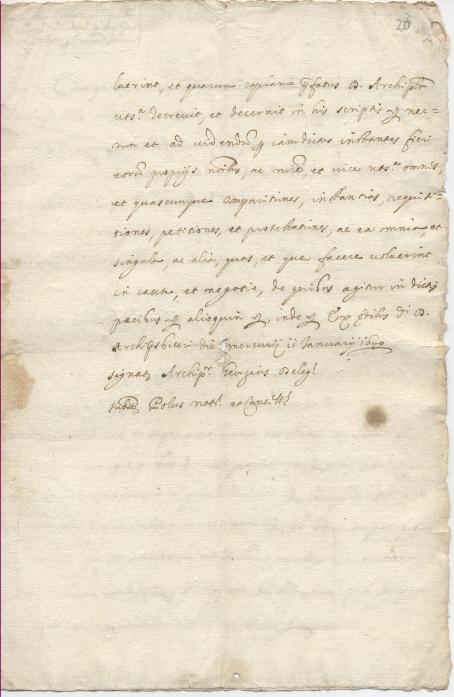 20
luerint, et quarum copiam pfatus D. Archipr
uts.ᵃ decrevit, et decernit in his scriptis & nec=
non et ad videndũ iamdictas instantes fieri
eorũ proprijs noĩbs, ac noĩe, et vice uts.ᵃ omnes,
et quascumque comparitiones, instantias, requisi=
tiones, petitiones, et protestatines, ac ea omnia, et
singula, ac alia, quas, et que facere voluerint
in causa, et negotio, de quibus agitur in dictis
pacibus & alioquin &, inde & Ex ędibs di D.
Archipsbiteri die mercurij ii Januarij
signat, Archipr. Deleg.
Polus not.